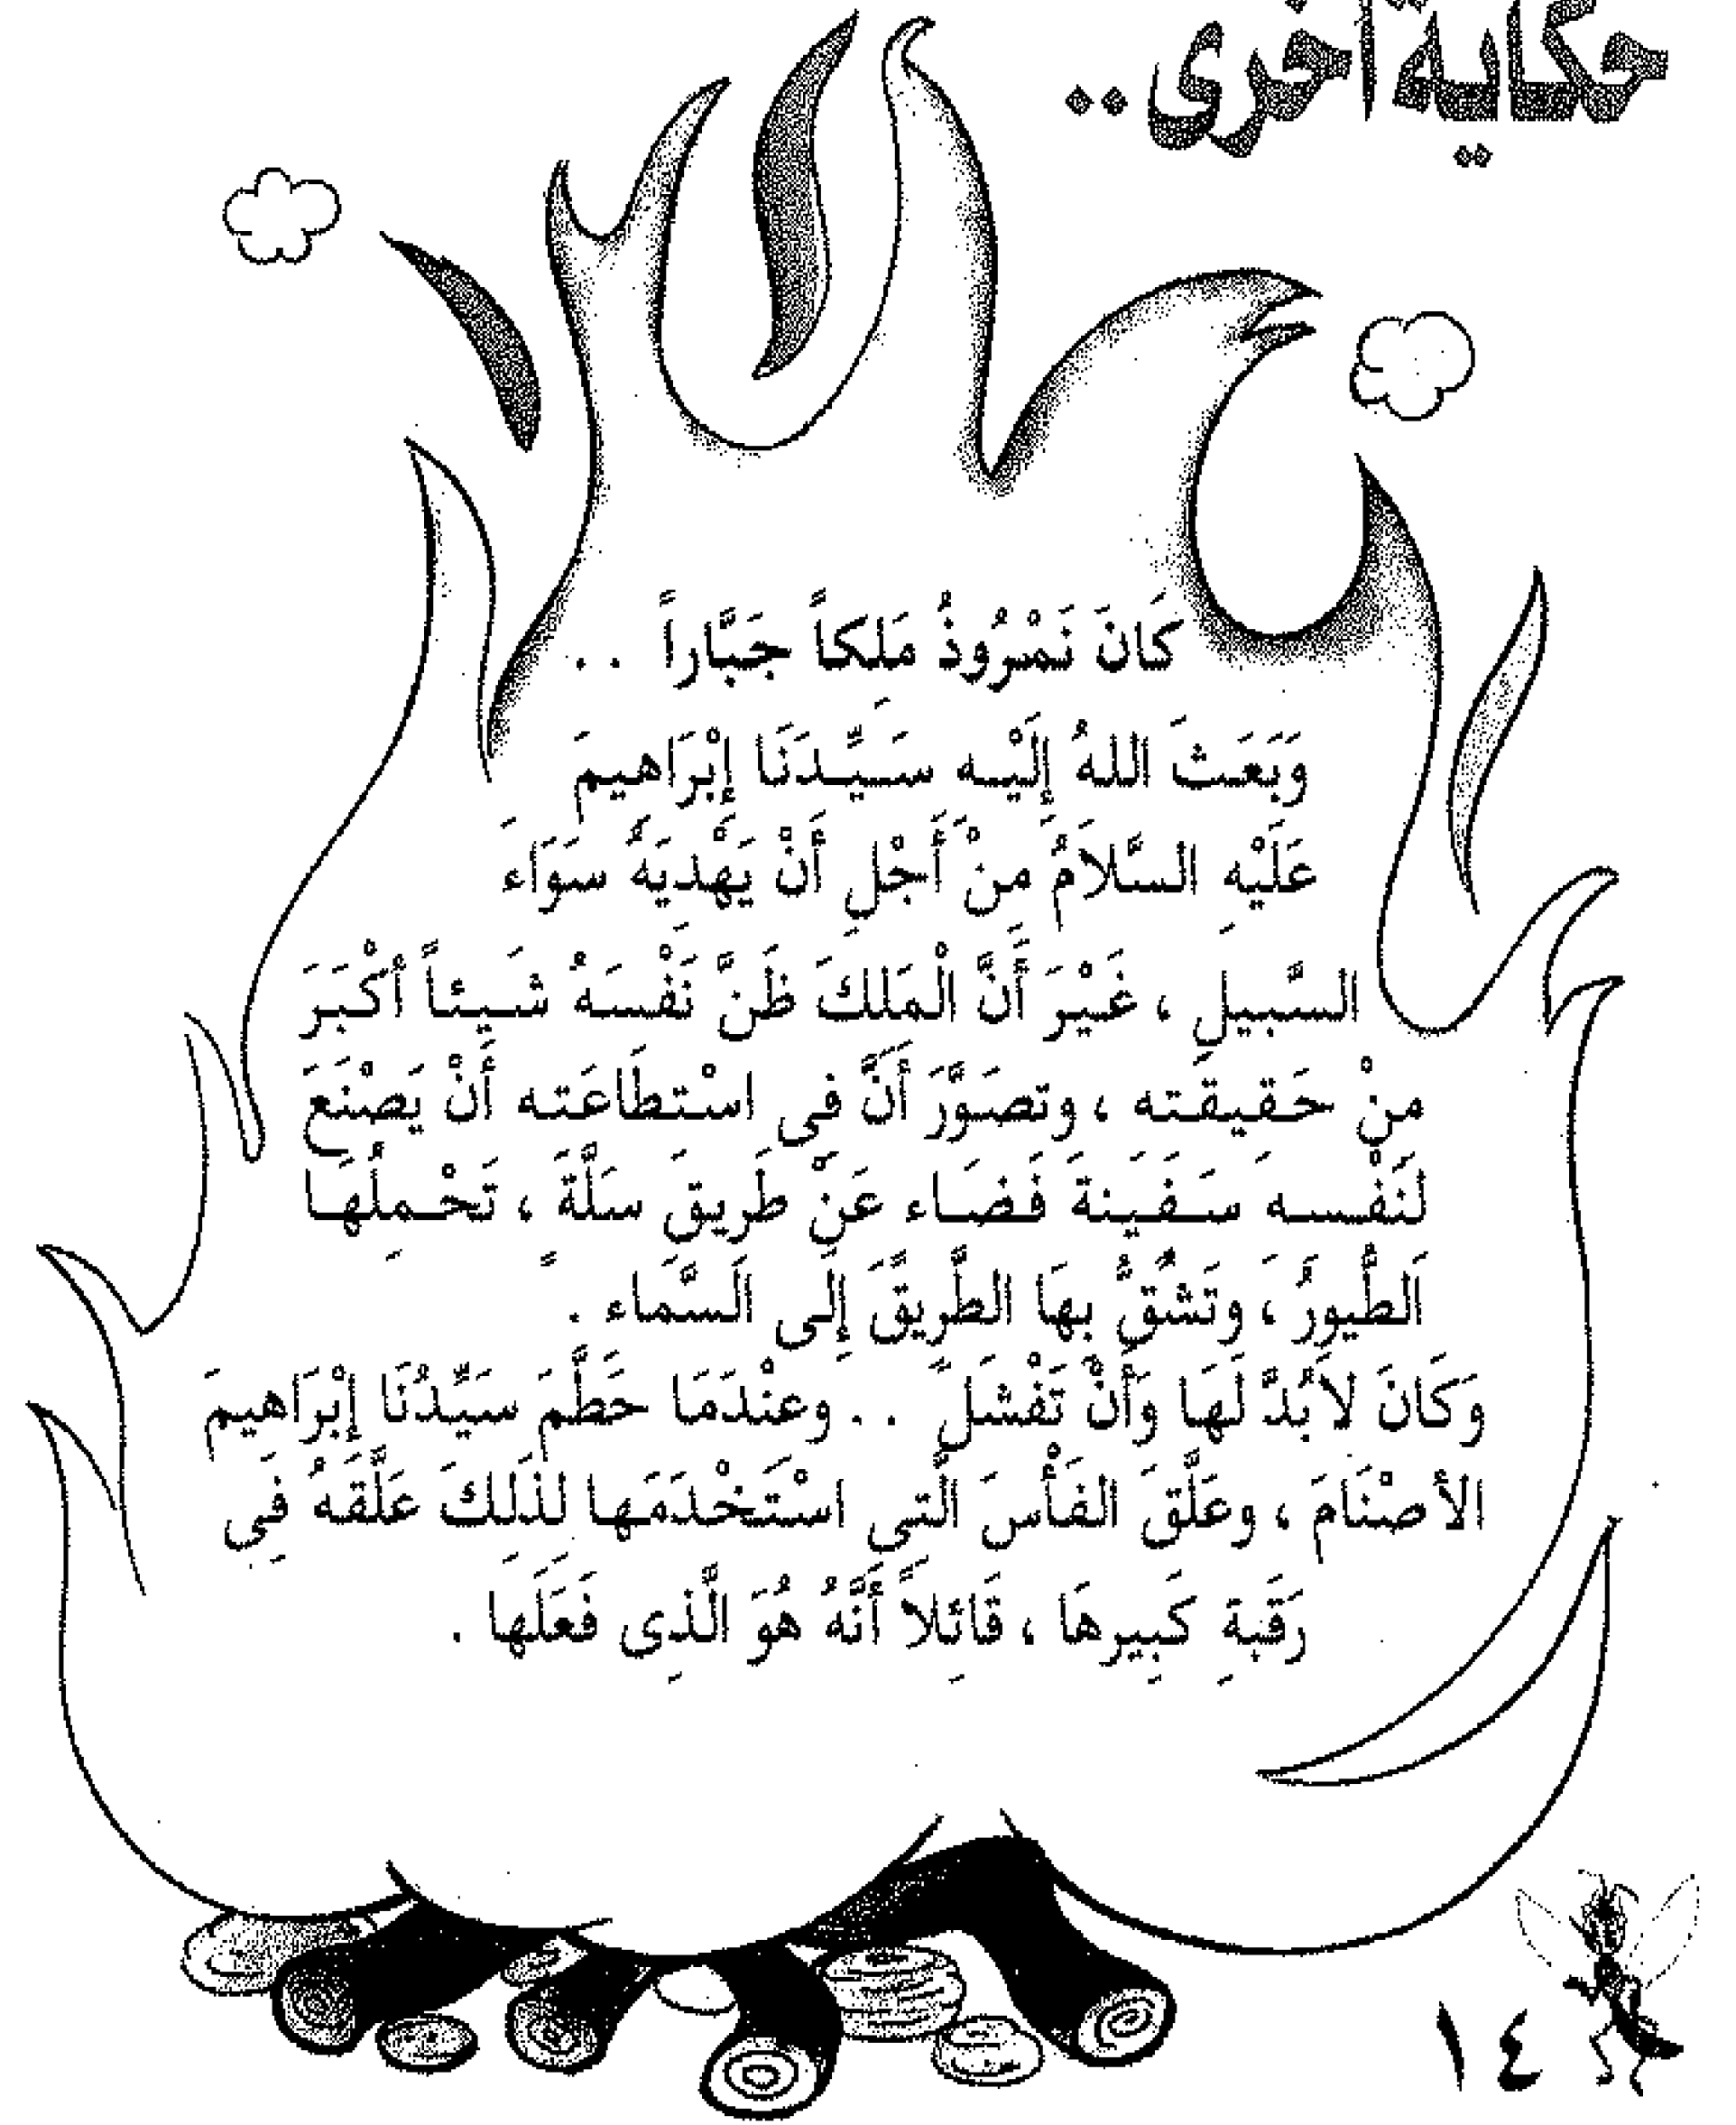 حكاية أخرى ..
كَانَ نَمْرُوذُ مَلِكاً جَبَّاراً ..
وَبَعَثَ اللهُ إِلَيْهِ سَيِّدَنَا إِبْرَاهِيمَ
عَلَيْهِ السَّلاَمُ مِنْ أَجْلِ أَنْ يَهْدِيَهُ سَوَاءَ
السَّبِيلِ ، غَيْرَ أَنَّ الْمَلِكَ ظَنَّ نَفْسَهُ شَيئاً أكْبَرَ
مِنْ حَقِيقَتِه ، وتصَوَّرَ أَنَّ فِى اسْتِطَاعَتِه أَنْ يَصْنَعَ
لنَفْسِه سَفِينةَ فَضَاء عَنْ طَرِيقِ سلَّةً ، تَحْمِلُهَا
الطُّيورُ ، وتَشُقُّ بِهَا الطَّرِيقَ إِلَى السَّمَاء .
وَكَانَ لاَبُدَّ لَهَا وَأَنْ تَفْشَلَ .. وعِنْدَمَا حَطَّمَ سَيِّدُنَا إِبْرَاهِيمَ
الأصْنَامَ ، وعَلَّقَ الفَأْسَ الَّتِى اسْتَخْدَمَها لذَلِكَ عَلَّقَهُ فِى
رَقَبةِ كَبِيرِهَا ، قَائِلاً أَنَّهُ هُوَ الَّذِى فَعَلَها .
١٤